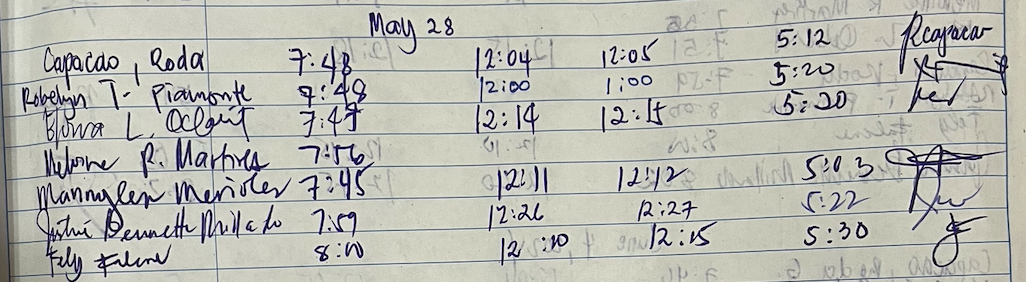 May 28
Capacao, Roda 7:48 12:04 12:05 5:12 Rcapacao
Robelyn T. Piamonte 7:48 12:00 1:00 5:20
L. 7:47 12:14 12:15 5:20
R. Martires 7:56
Mannylen 7:45 12:11 12:12 5:03
Bennette 7:59 12:26 12:27 5:22
Fely 8:00 12:10 12:15 5:30